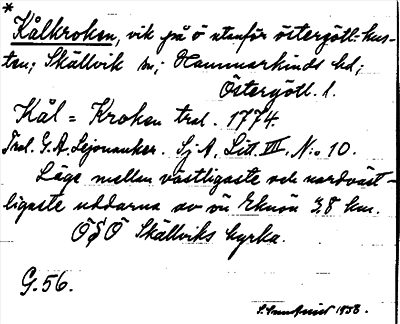 *
Kålkroken, vik på ö utanför östergötl. kus-
ten; Skällvik sn; Hammarkinds hd;
Östergötl. l.
Kål = Kroken tral. 1774.
Tral. G. A. Lejonanker. Sj. A, Litt. VII, N:o 10.
Läge mellan västligaste och nordväst-
ligaste uddarna av ön Eknön 3,8 km.
ÖSÖ Skällviks kyrka.
G. 56.
1938.